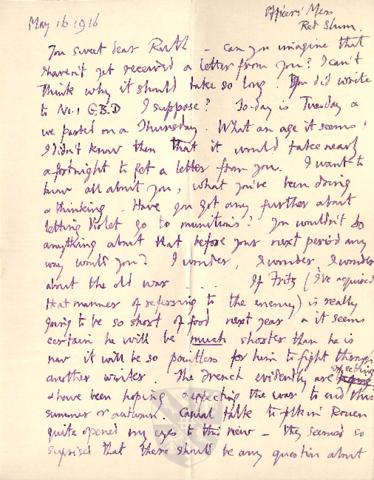 May 16 1916
Officers' Mess
Red Slum.
You sweet dear Ruth – can you imagine that
I haven't yet received a letter from you? I can't
think why it should take so long. You did write
to No. 1 G.B.D I suppose? To-day is Tuesday &
we parted on a Thursday. What an age it seems!
I didn't know then that it would take nearly
a fortnight to get a letter from you. I want to
know all about you, what you've been doing
& thinking. Have you got any further about
letting Violet go to munitions? You wouldn't do
anything about that before your next period any
way would you? I wonder, I wonder, I wonder
about the old war . . . . If Fritz (I've acquired
that manner of referring to the enemy) is really
going to be so short of food next year & it seems
certain he will be much shorter than he is
now it will be so pointless for him to fight through
another winter. The French evidently are
& have been hoping & expecting the war to end this
summer or autumn. Casual talk to ppl in Rouen
quite opened my eyes to this view – they seemed so
surprised that there should be any question about